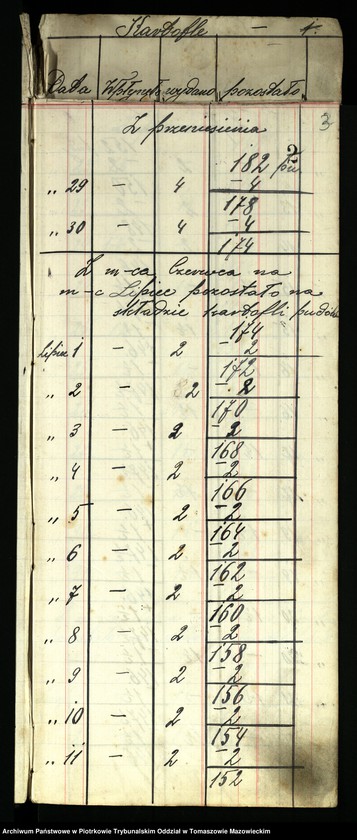 Kartofle — 1.
Data Wpłynęło wydano pozostało
3
Z przeniesienia
182 pud
„ 29 — 4 – 4
178
„ 30 — 4 – 4
174
Z m-ca Czerwca na
m-c Lipiec pozostało na
składzie kartofli pudów
174
lipiec 1 — 2 – 2
172
„ 2 — 2 – 2
170
„ 3 — 2 – 2
168
„ 4 — 2 – 2
166
„ 5 — 2 – 2
164
„ 6 — 2 – 2
162
„ 7 — 2 – 2
160
„ 8 — 2 – 2
158
„ 9 — 2 – 2
156
„ 10 — 2 – 2
154
„ 11 — 2 – 2
152
Archiwum Państwowe w Piotrkowie Trybunalskim Oddział w Tomaszowie Mazowieckim